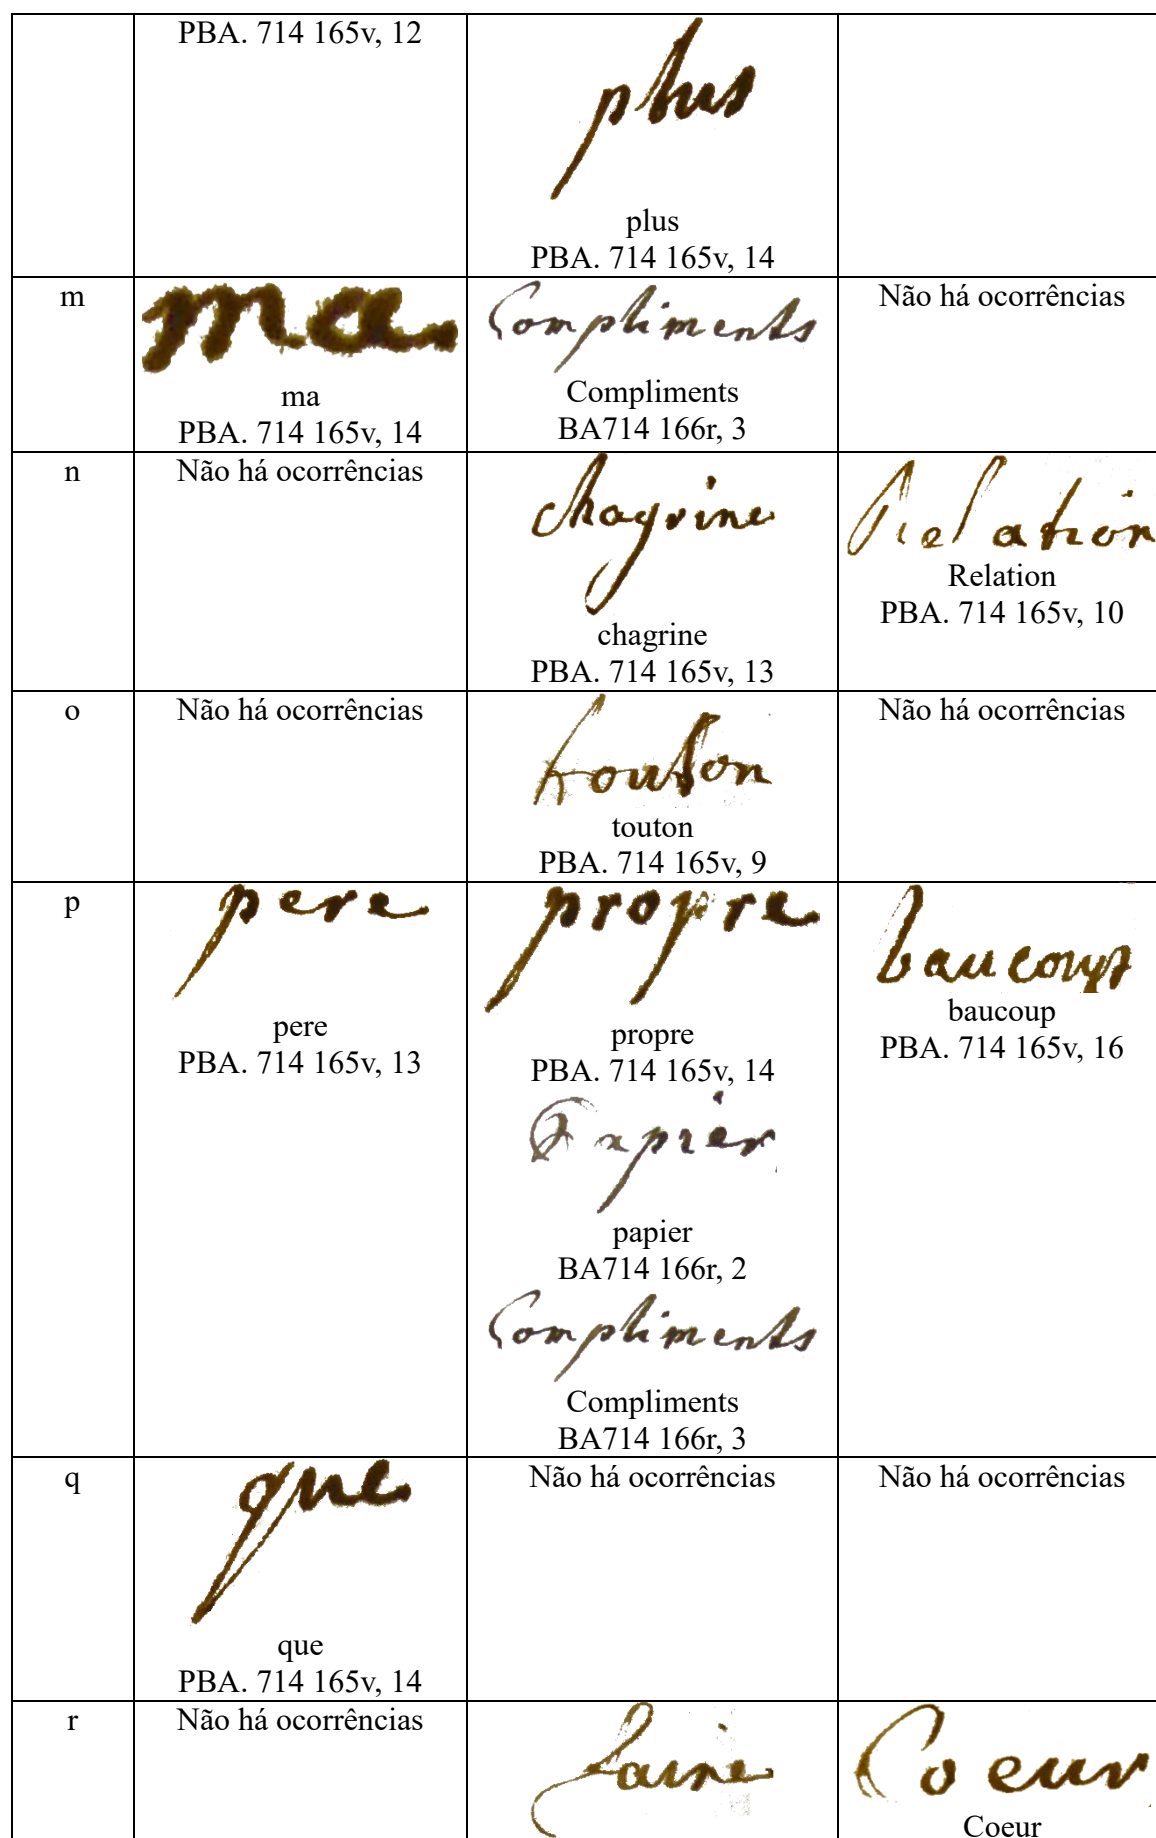 PBA. 714 165v, 12
plus
plus
PBA. 714 165v, 14
m
ma
ma
PBA. 714 165v, 14
Compliments
Compliments
BA714 166r, 3
Não há ocorrências
n
Não há ocorrências
chagrine
chagrine
PBA. 714 165v, 13
Relation
Relation
PBA. 714 165v, 10
o
Não há ocorrências
touton
touton
PBA. 714 165v, 9
Não há ocorrências
p
pere
pere
PBA. 714 165v, 13
propre
propre
PBA. 714 165v, 14
Papier
papier
BA714 166r, 2
Compliments
Compliments
BA714 166r, 3
baucoup
baucoup
PBA. 714 165v, 16
q
que
que
PBA. 714 165v, 14
Não há ocorrências
Não há ocorrências
r
Não há ocorrências
Coeur
Coeur